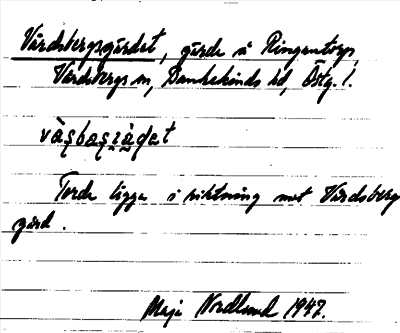 Vårdsbergsgärdet, gärde å Ringentorp,
Vårdsbergs sn, Bankekinds hd, Östg. l.
vàʂbaʂɟæ̀ɖat
Torde ligga i riktning mot Vårdsberg
gård.
Maja Nordlund 1947.